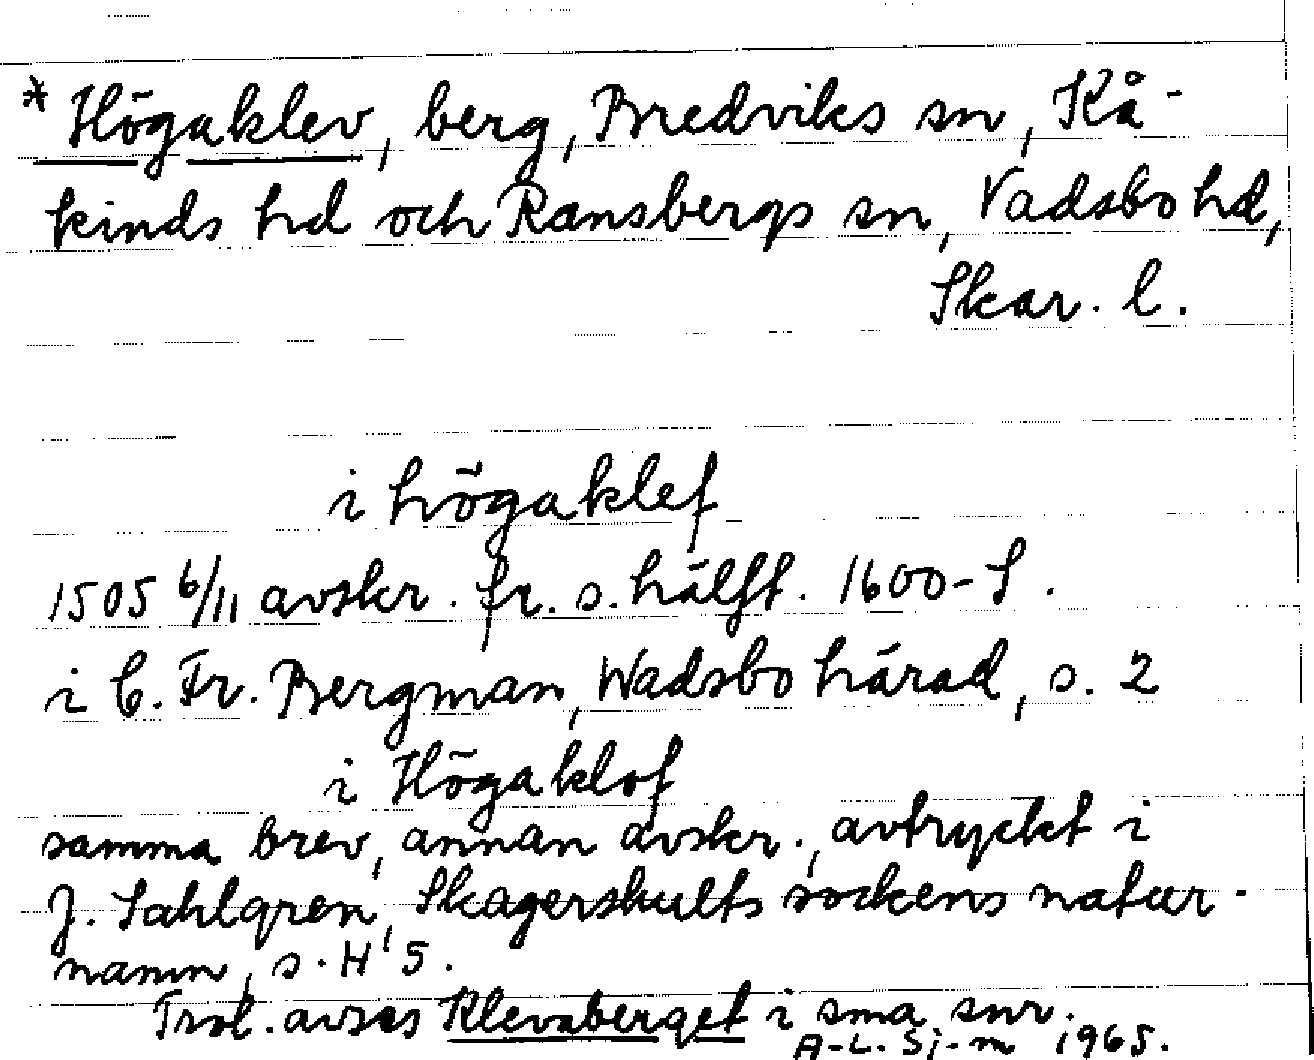 * Högaklev, berg, Bredviks sn, Kå-
kinds hd och Ransbergs sn, Vadsbo hd,
Skar. l.
i högaklef
1505 6/11 avskr. fr. s. hälft. 1600-t.
i C. Fr. Bergman, Wadsbo härad, s. 2
i Högaklof
samma brev, annan avskr., avtryckt i
J. Sahlgren, Skagershults sockens natur-
namn, s. H 5.
Trol. avses Klevaberget i sma snr.
A-L. Sj-m 1965.